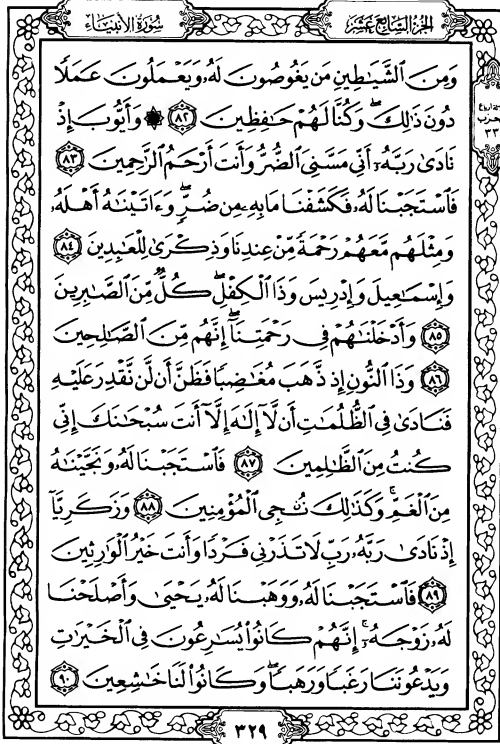 سُورَةُ الأَنبِيَاءِ
الجُزْءُ السَّابِعَ عَشَرَ
وَمِنَ ٱلشَّيَٰطِينِ مَن يَغُوصُونَ لَهُۥ وَيَعْمَلُونَ عَمَلًا
دُونَ ذَٰلِكَ ۖ وَكُنَّا لَهُمْ حَٰفِظِينَ ٨٢ ۞ وَأَيُّوبَ إِذْ
نَادَىٰ رَبَّهُۥٓ أَنِّى مَسَّنِىَ ٱلضُّرُّ وَأَنتَ أَرْحَمُ ٱلرَّٰحِمِينَ ٨٣
فَٱسْتَجَبْنَا لَهُۥ فَكَشَفْنَا مَا بِهِۦ مِن ضُرٍّ ۖ وَءَاتَيْنَٰهُ أَهْلَهُۥ
وَمِثْلَهُم مَّعَهُمْ رَحْمَةً مِّنْ عِندِنَا وَذِكْرَىٰ لِلْعَٰبِدِينَ ٨٤
وَإِسْمَٰعِيلَ وَإِدْرِيسَ وَذَا ٱلْكِفْلِ ۖ كُلٌّ مِّنَ ٱلصَّٰبِرِينَ
٨٥ وَأَدْخَلْنَٰهُمْ فِى رَحْمَتِنَآ ۖ إِنَّهُم مِّنَ ٱلصَّٰلِحِينَ
٨٦ وَذَا ٱلنُّونِ إِذ ذَّهَبَ مُغَٰضِبًا فَظَنَّ أَن لَّن نَّقْدِرَ عَلَيْهِ
فَنَادَىٰ فِى ٱلظُّلُمَٰتِ أَن لَّآ إِلَٰهَ إِلَّآ أَنتَ سُبْحَٰنَكَ إِنِّى
كُنتُ مِنَ ٱلظَّٰلِمِينَ ٨٧ فَٱسْتَجَبْنَا لَهُۥ وَنَجَّيْنَٰهُ
مِنَ ٱلْغَمِّ ۚ وَكَذَٰلِكَ نُۨجِى ٱلْمُؤْمِنِينَ ٨٨ وَزَكَرِيَّآ
إِذْ نَادَىٰ رَبَّهُۥ رَبِّ لَا تَذَرْنِى فَرْدًا وَأَنتَ خَيْرُ ٱلْوَٰرِثِينَ
٨٩ فَٱسْتَجَبْنَا لَهُۥ وَوَهَبْنَا لَهُۥ يَحْيَىٰ وَأَصْلَحْنَا
لَهُۥ زَوْجَهُۥٓ ۚ إِنَّهُمْ كَانُوا۟ يُسَٰرِعُونَ فِى ٱلْخَيْرَٰتِ
وَيَدْعُونَنَا رَغَبًا وَرَهَبًا ۖ وَكَانُوا۟ لَنَا خَٰشِعِينَ ٩٠
٣٢٩